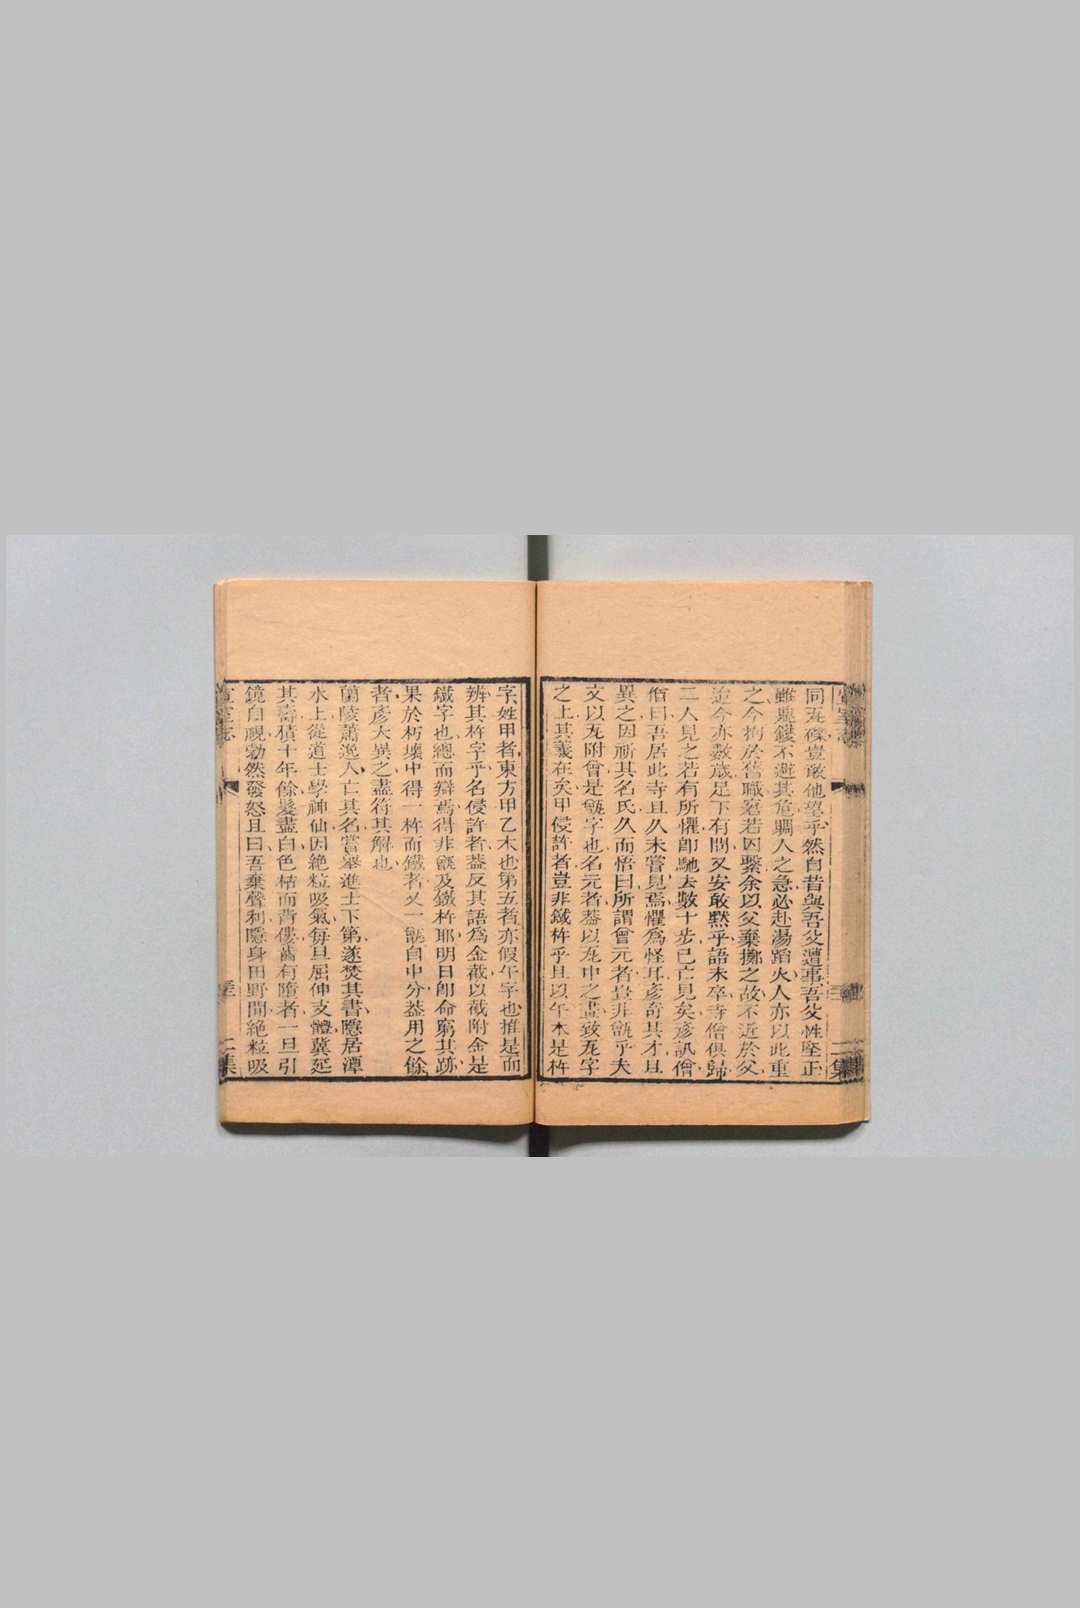 同瓦礫豈敢他望乎然自昔與吾父遭事吾父性堅正
雖鼎鑊不避其危賙人之急必赴湯蹈火人亦以此重
之今拘於舊職窘若囚繫余以父棄擲之故不近於父
迨今亦數歲足下有問又安敢默乎語未卒寺僧俱歸
二人見之若有所懼卽馳去數十步已亡見矣彥訊僧
僧曰吾居此寺且久未嘗見焉懼爲怪耳彥奇其才且
異之因祈其名氏久而悟曰所謂曾元者豈非甑乎夫
文以瓦附曾是甑字也名元者蓋以瓦中之畫致瓦字
之上其義在矣甲侵訐者豈非鐵杵乎且以午木是杵
字姓甲者東方甲乙木也第五者亦假午字也推是而
辨其杵字乎名侵訐者蓋反其語爲金截以截附金是
鐵字也總而辯焉得非甑及鐵杵耶明日卽命窮其跡
果於朽壤中得一杵而鐵者又一甑自中分蓋用之餘
者彥大異之盡符其解也
蘭陵蕭逸人亡其名嘗舉進士下第遂焚其書隱居潭
水上從道士學神仙因絶粒吸氣每旦屈伸支體冀延
其壽積十年餘髮盡白色枯而背僂齒有墮者一旦引
鏡自覩勃然發怒且曰吾棄聲利隱身田野間絶粒吸
宣室志
二集